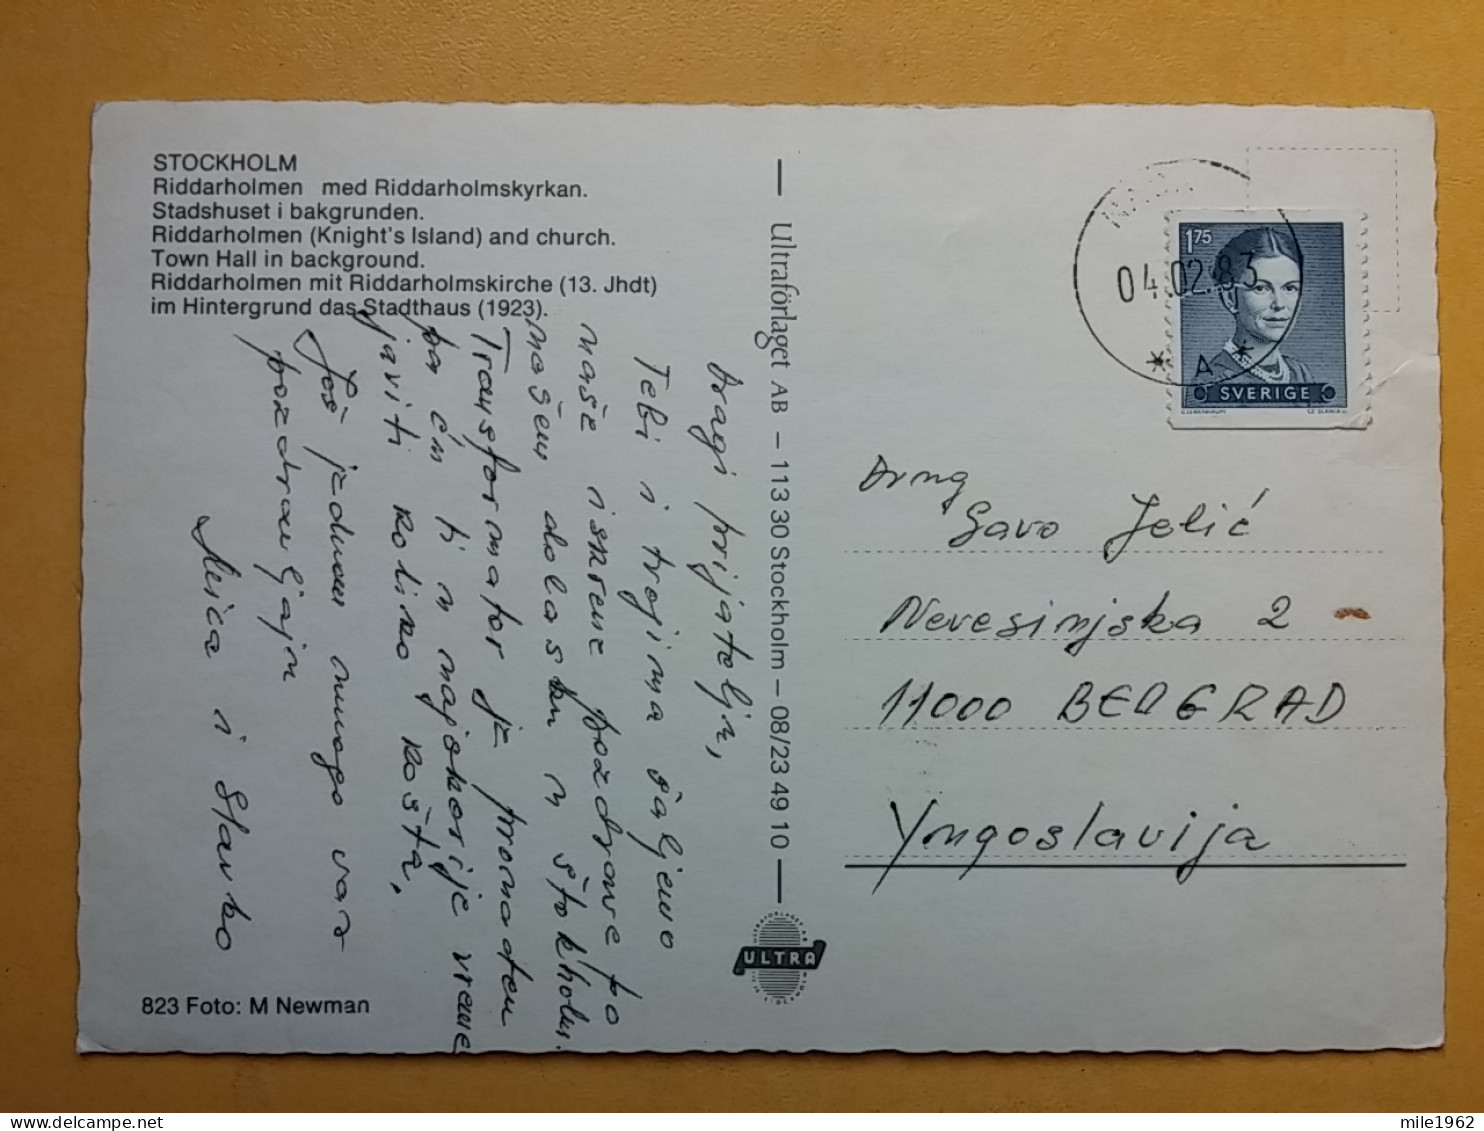 STOCKHOLM
Riddarholmen med Riddarholmskyrkan.
Stadshuset i bakgrunden.
Riddarholmen (Knight's Island) and church.
Town Hall in background.
Riddarholmen mit Riddarholmskirche (13. Jhdt)
im Hintergrund das Stadthaus (1923).
Dragi prijatelju,
Tebi i tvojima šaljemo
naše iskrene pozdrave po
našem dolasku u Štokholm.
Transformator je pronađen
pa ću ti u najskorije vreme
javiti koliko košta.
Još jednom mnogo vas
pozdravljaju
Mića i Slavko
823 Foto: M Newman
Ultraförlaget AB – 113 30 Stockholm – 08/23 49 10
ULTRA
04.02.83
* A *
1.75
SVERIGE
CZ SLANIA
Drug
Savo Jelić
Nevesinjska 2
11000 BEOGRAD
Yugoslavija
mile1962